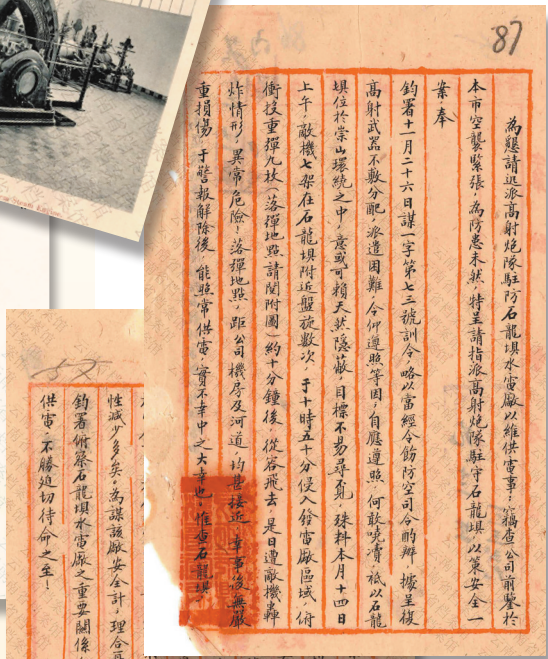 87
為懇請迅派高射炮隊駐防石龍壩水電廠以維供電事：竊查公司前鑒於
本市空襲緊張，為防患未然，特呈請指派高射炮隊駐守石龍壩，以策安全一
案，奉
鈞署十一月二十六日謀一字第七三號訓令，略以當經令飭防空司令酌辦，據呈復
高射武器不敷分配，派遣困難，令仰遵照等因，自應遵照，何敢喋瀆，祇以石龍
壩位於崇山環繞之中，意或可賴天然隱蔽，目標不易尋覓，殊料本月十四日
上午，敵機七架在石龍壩附近盤旋數次，于十時五十分侵入發電廠區域，俯
衝投重彈九枚（落彈地點請閱附圖）約十分鐘後，從容飛去，是日遭敵機轟
炸情形，異常危險！落彈地點，距公司機房及河道，均甚接近，幸事後無嚴
重損傷，于警報解除後，能照常供電，實不幸中之大幸也，惟查石龍壩
性減少多矣。為謀該廠安全計，理合再
鈞署俯鑒石龍壩水電廠之重要關係
供電，不勝迫切待命之至！